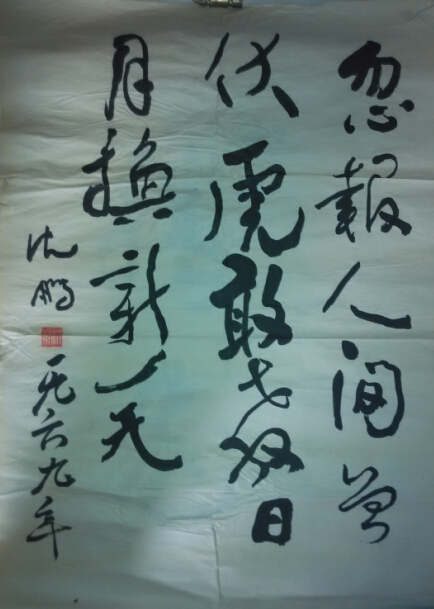 忽報人間曾
伏虎敢教日
月換新天
沈鵬
一九六九年